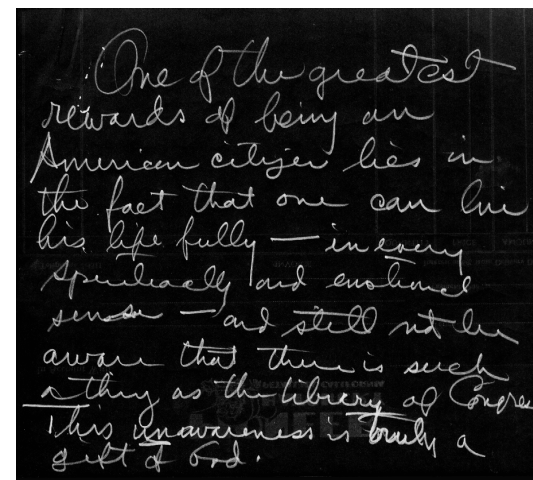 One of the greatest
rewards of being an
American citizen lies in
the fact that one can live
his life fully — in every
spiritually and emotional
sense — and still not be
aware that there is such
a thing as the library of Congress
This unawareness is truly a
gift of God.